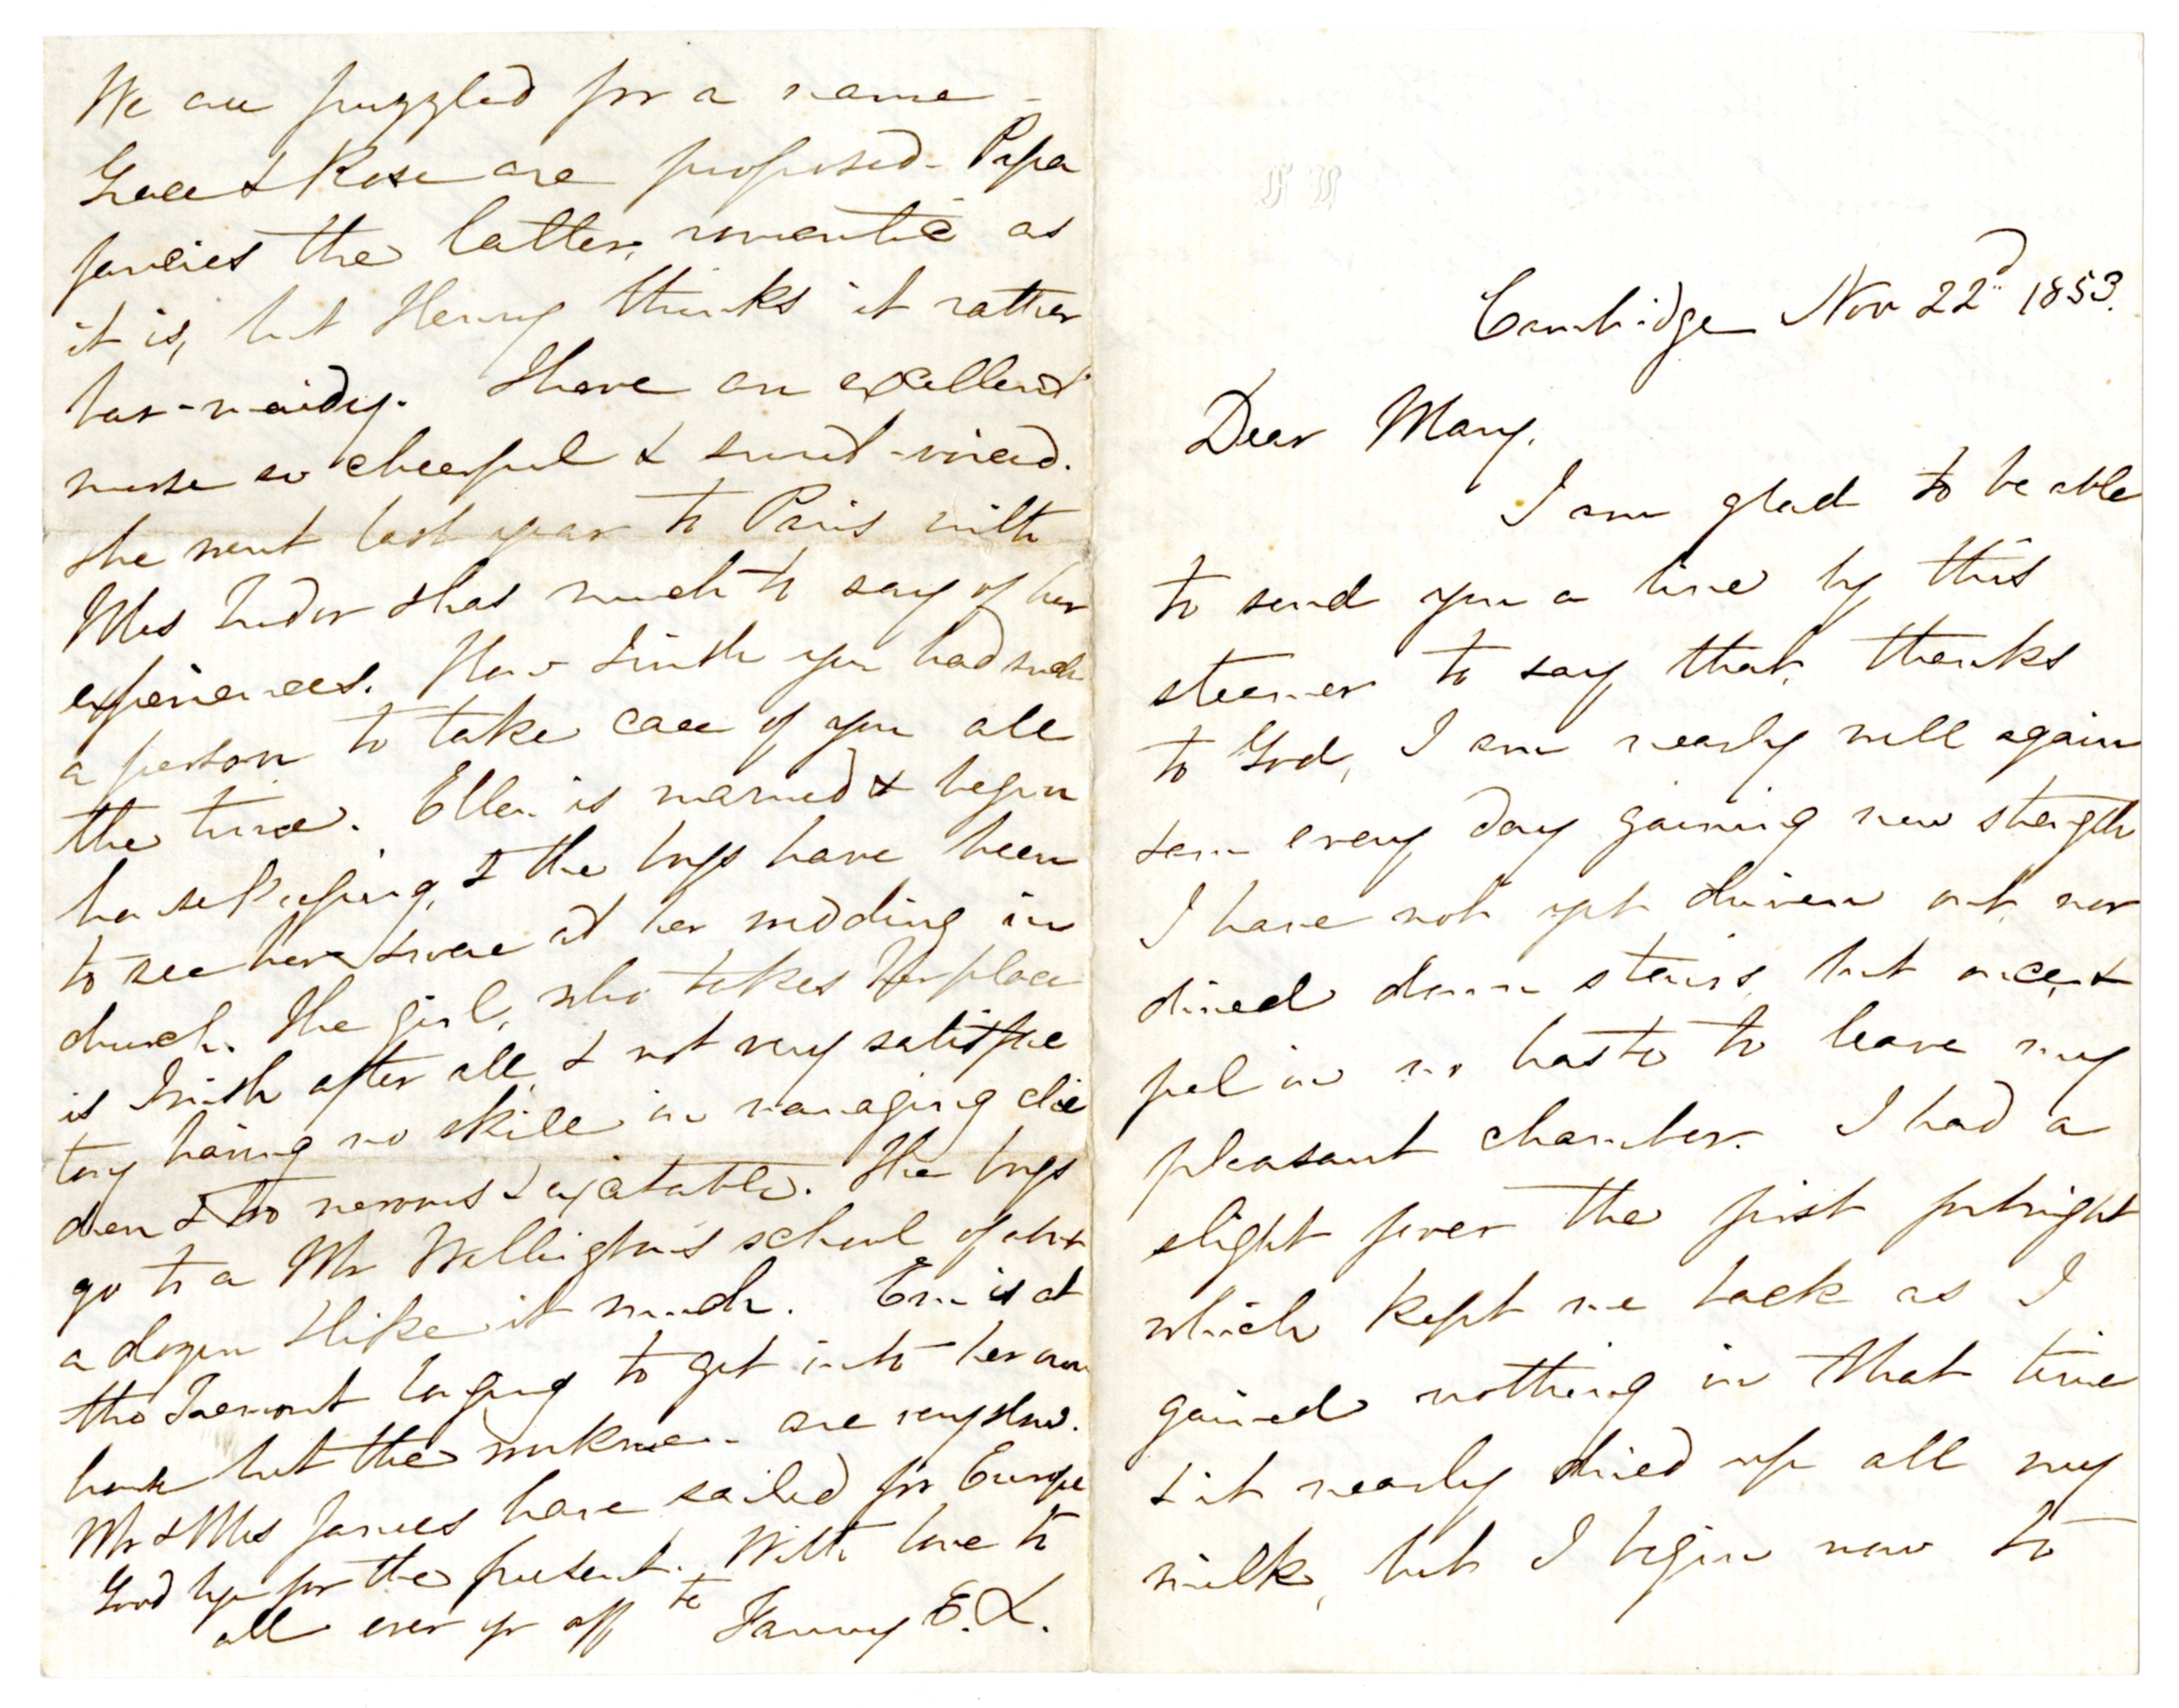 Cambridge Nov 22d 1853.
Dear Mary,
I am glad to be able
to send you a line by this
steamer to say that, thanks
to God, I am nearly well again
& am every day gaining new strength
I have not yet driven out, nor
dined down stairs but once, &
feel in no haste to leave my
pleasant chamber. I had a
slight fever the first fortnight
which kept me back as I
gained nothing in that time
& it nearly dried up all my
milk, but I begin now to
We are puzzled for a name -
Grace & Rose are proposed - Papa
fancies the latter, romantic as
it is, but Henry thinks it rather
bar-maidy. I have an excellent
nurse so cheerful & sweet-voiced.
She went last year to Paris with
Mrs Tudor & has much to say of her
experiences. How I wish you had such
a person to take care of you all
the time. Ellen is married & begun
housekeeping, & the boys have been
to see her & were at her wedding in
church. The girl, who takes her place
is Irish after all, & not very satisfac
tory having no skill in managing chil
dren & so nervous & excitable. The boys
go to a Mr Wellington's school of about
a dozen & like it much. Em is at
the Tremont longing to get into her own
house but the workmen are very slow.
Mr & Mrs James have sailed for Europe
Good bye for the present. With love to
all ever yr affte Fanny E. L.